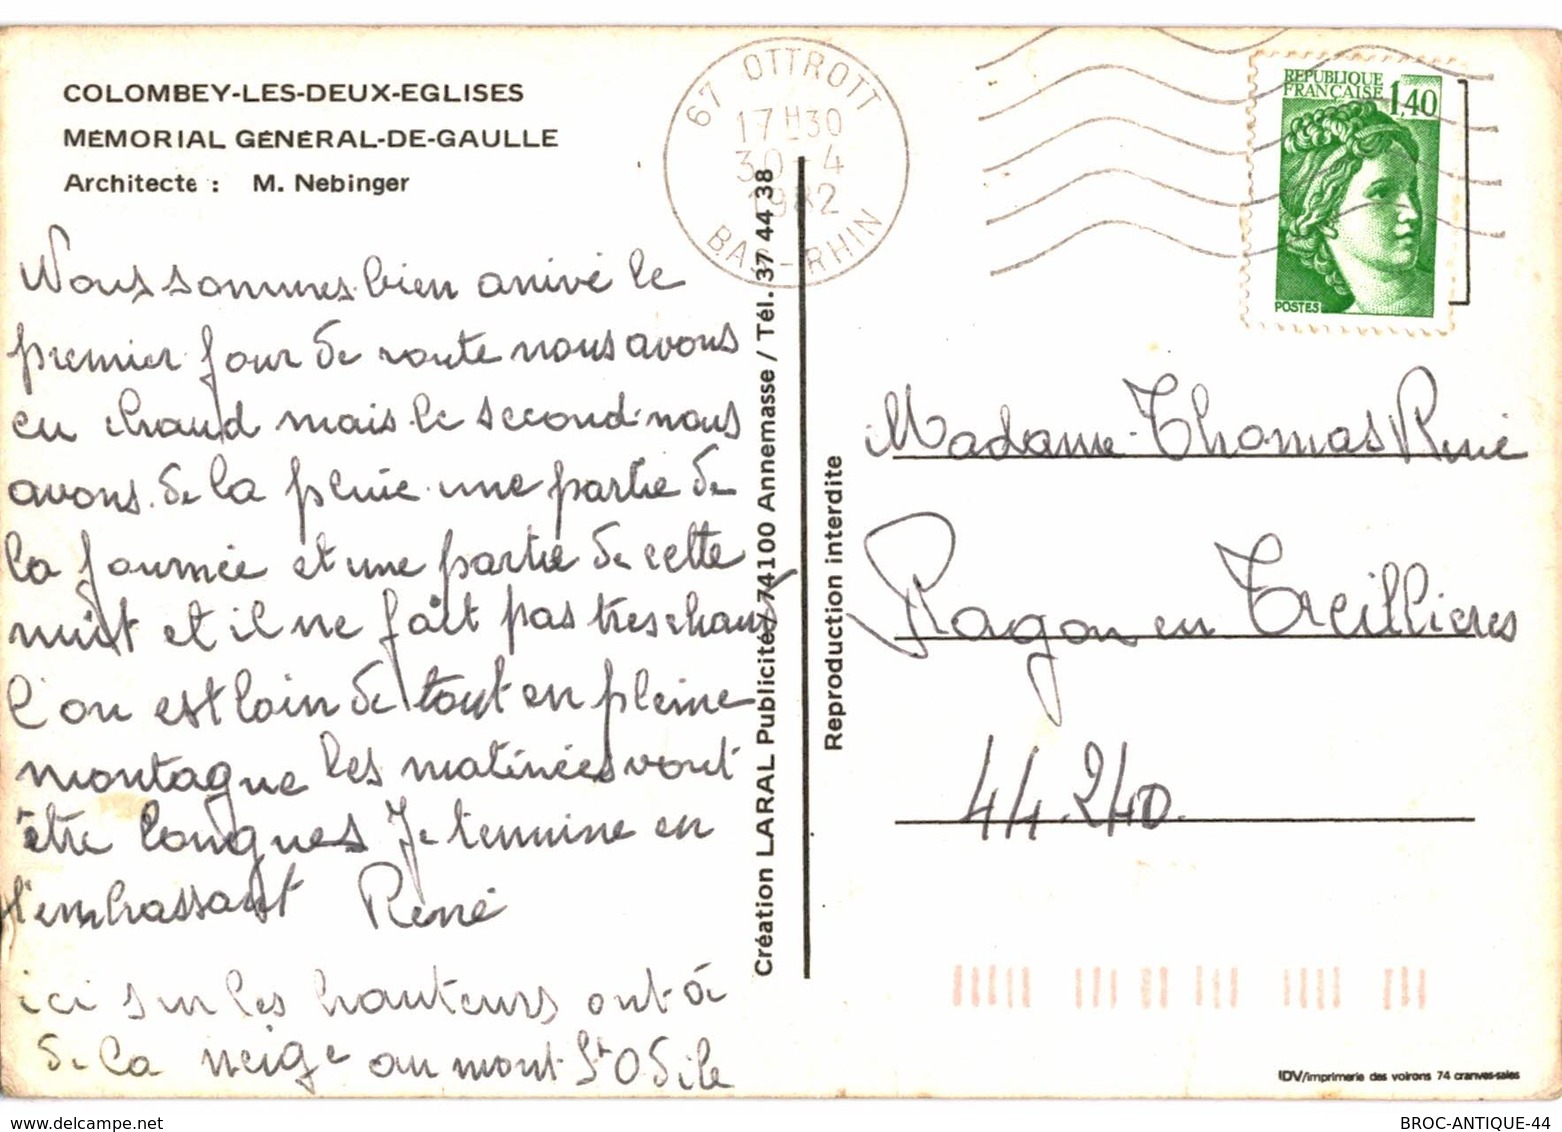 COLOMBEY-LES-DEUX-EGLISES
MÉMORIAL GÉNÉRAL-DE-GAULLE
Architecte : M. Nebinger
Nous sommes bien arrivé le
premier jour de route nous avons
eu chaud mais le second nous
avons de la pluie une partie de
la journée et une partie de cette
nuit et il ne fait pas tres chaud
l'on est loin de tout en pleine
montagne les matinées vont
être longues Je termine en
t'embrassant René
ici sur les hauteurs ont à
de la neige au mont St Odile
67 OTTROTT
17H30
30-4
1982
BAS-RHIN
Création LARAL Publicité / 74100 Annemasse / Tél. 37 44 38
Reproduction interdite
REPUBLIQUE
FRANÇAISE
1,40
POSTES
Madame Thomas René
Ragon en Treillieres
44.240.
IDV/imprimerie des voirons 74 cranves-sales
BROC-ANTIQUE-44